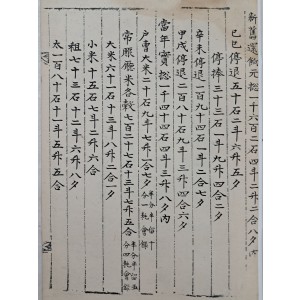 新舊還餉元摠二千六百二石四斗二升二合八夕內
己巳停退五十石二斗六升五夕
停捧三十一石二斗九升四合二夕
辛未停退一百九十四石二斗二合七夕
甲戌停退一百八十石九斗三升四合六夕
當年實摠二千四十四石四斗三升八夕內
戶曹大米二十九石九斗七升一合七夕
常賑廳米各穀七百二十七石十三斗七升五合
大米六十一石十三斗八升二合一夕
小米十五石七斗二升六合
租七十三石十二斗六升八夕
太一百八十石十二斗五升五合